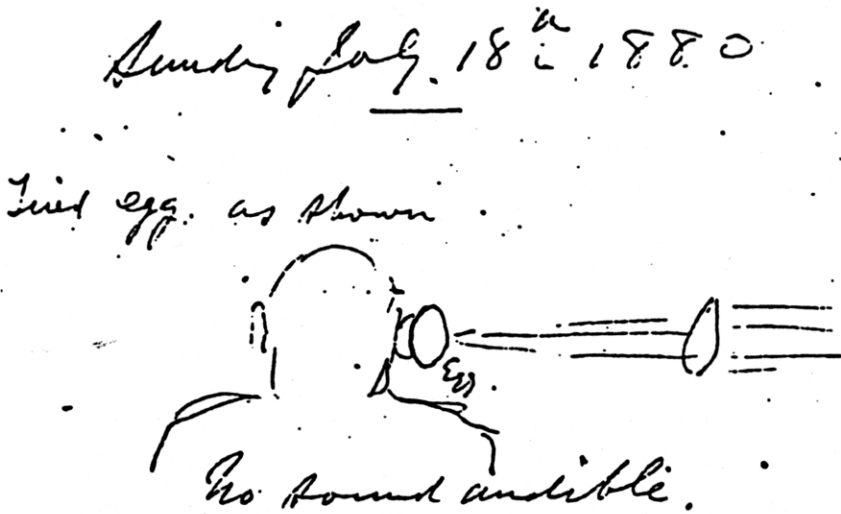 Sunday July. 18th 1880
Tried egg. as shown
Egg.
No sound audible.